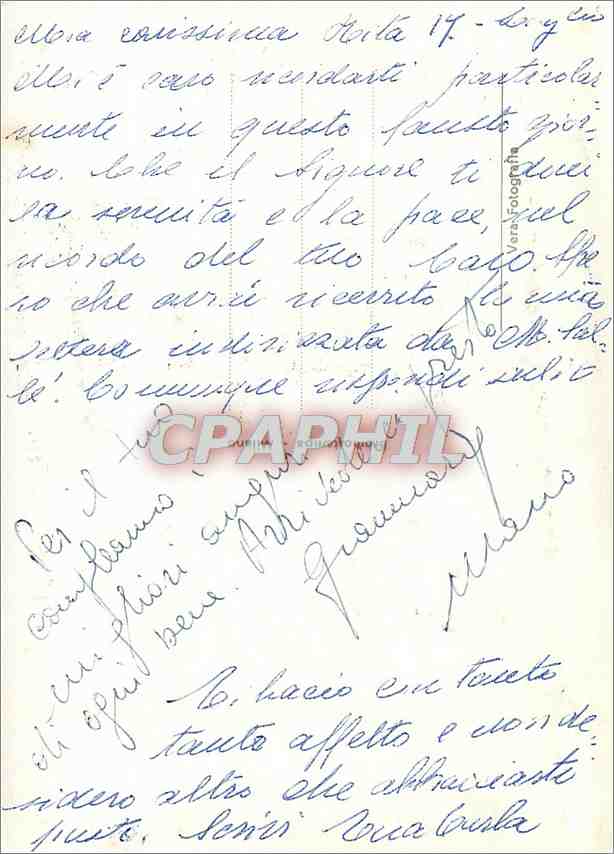 Mia carissima Rita 17 - Luglio
Mi è caro ricordarti particolar
mente in questo fausto gior-
no. Che il Signore ti dia
la serenità e la pace, nel
ricordo del tuo Caro. Spe
ro che avrai ricevuto la mia
lettera indirizzata da
Comunque rispondi subito
Per il tuo
compleanno i
migliori auguri
di ogni bene. Arrivederci Presto
Giammaria
Ti bacio con tanto
tanto affetto e non de-
sidero altro che abbracciarti
presto. Scrivi tua Carla
Vera Fotografia
CPARPHIL
Milano